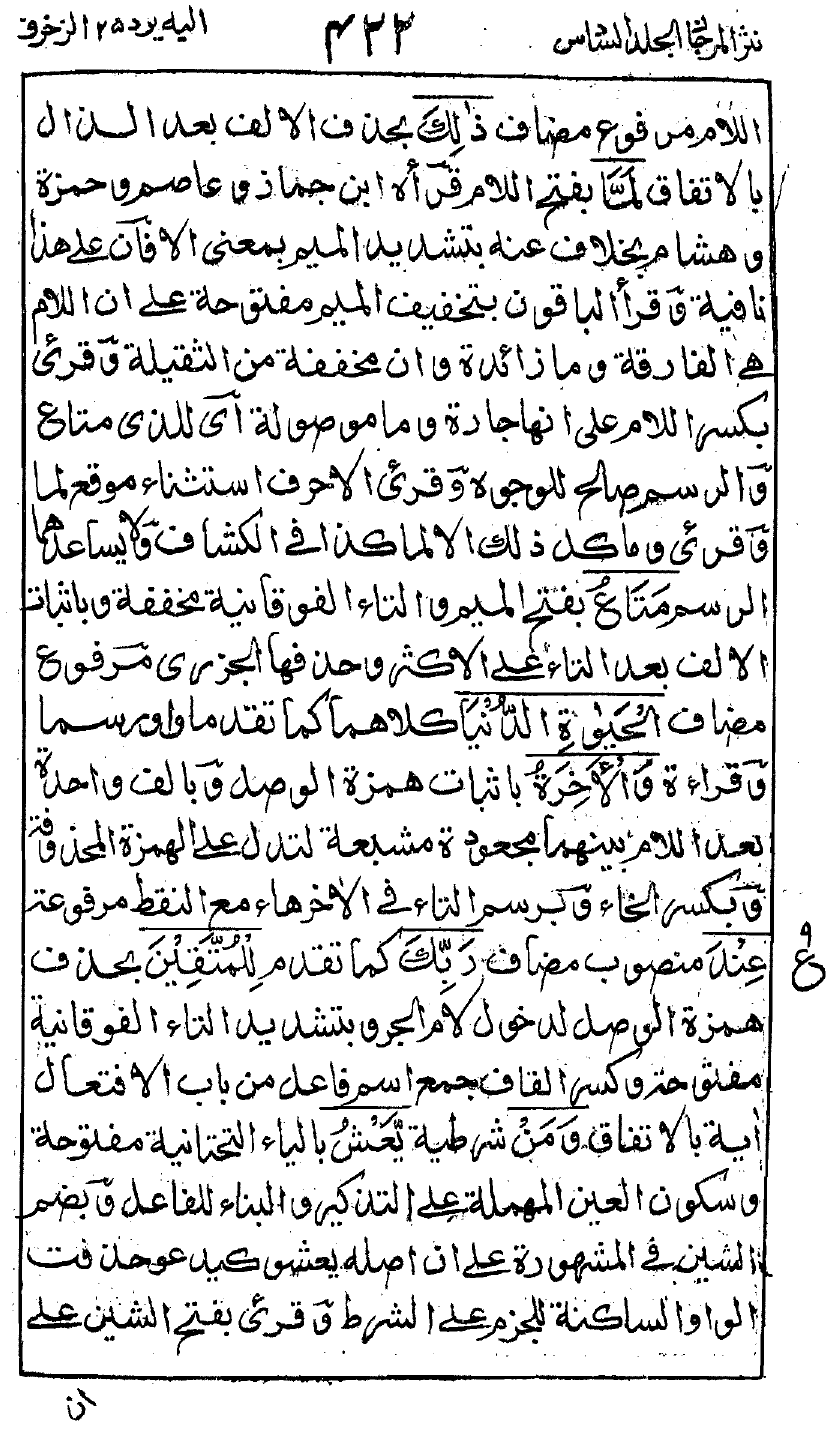 نثر المرجان الجلد السادس ٤٢٢ اليه يرد ٢٥ الزخرف
اللام مرفوع مضاف ذٰلِكَ بحذف الالف بعد الذال
بالاتفاق لَمَّا بفتح اللام قرأه ابن جماز وعاصم وحمزة
وهشام بخلاف عنه بتشديد الميم بمعنى الا فان على هذا
نافية وقرأ الباقون بتخفيف الميم مفتوحة على ان اللام
هى الفارقة وما زائدة وان مخففة من الثقيلة وقرئ
بكسر اللام على انها جارة وما موصولة اى للذى متاع
والرسم صالح للوجوه وقرئ الا حرف استثناء موقع لما
وقرئ وما كل ذلك الا لما كذا فى الكشاف ولا يساعدهما
الرسم مَتَاعُ بفتح الميم والتاء الفوقانية مخففة وباثبات
الالف بعد التاء على الاكثر وحذفها الجزرى مرفوع
مضاف الْحَيٰوةِ الدُّنْيَا كلاهما كما تقدما واو رسما
وقراءة وَالْاٰخِرَةُ باثبات همزة الوصل وبالف واحدة
بعد اللام بينهما مجعودة مشبعة لتدل على الهمزة المحذوفة
وبكسر الخاء وبرسم التاء فى الآخر هاء مع النقط مرفوعة
عِنْدَ منصوب مضاف رَبِّكَ كما تقدم لِلْمُتَّقِيْنَ بحذف
همزة الوصل لدخول لام الجر وبتشديد التاء الفوقانية
مفتوحة وكسر القاف جمع اسم فاعل من باب الافتعال
اية بالاتفاق وَمَنْ شرطية يَّعْشُ بالياء التحتانية مفتوحة
وسكون العين المهملة على التذكير والبناء للفاعل وبضم
الشين فى المشهورة على ان اصله يعشو كيدعو حذفت
الواو الساكنة للجزم على الشرط وقرئ بفتح الشين على
ع
ان